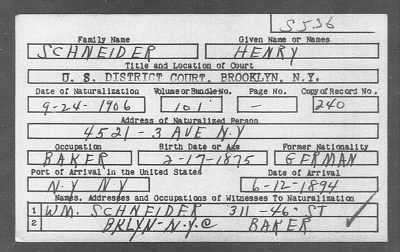 S536
Family Name Given Name or Names
SCHNEIDER HENRY
Title and Location of Court
U. S. DISTRICT COURT, BROOKLYN, N.Y.
Date of Naturalization Volume or Bundle No. Page No. Copy of Record No.
9-24-1906 101 — 240
Address of Naturalized Person
4521 - 3 AVE N.Y
Occupation Birth Date or Age Former Nationality
BAKER 2-17-1875 GERMAN
Port of Arrival in the United States Date of Arrival
N.Y N.Y 6-12-1894
Names, Addresses and Occupations of Witnesses To Naturalization
1 WM. SCHNEIDER 311 - 46 - ST
2 BKLYN-N.Y.C BAKER